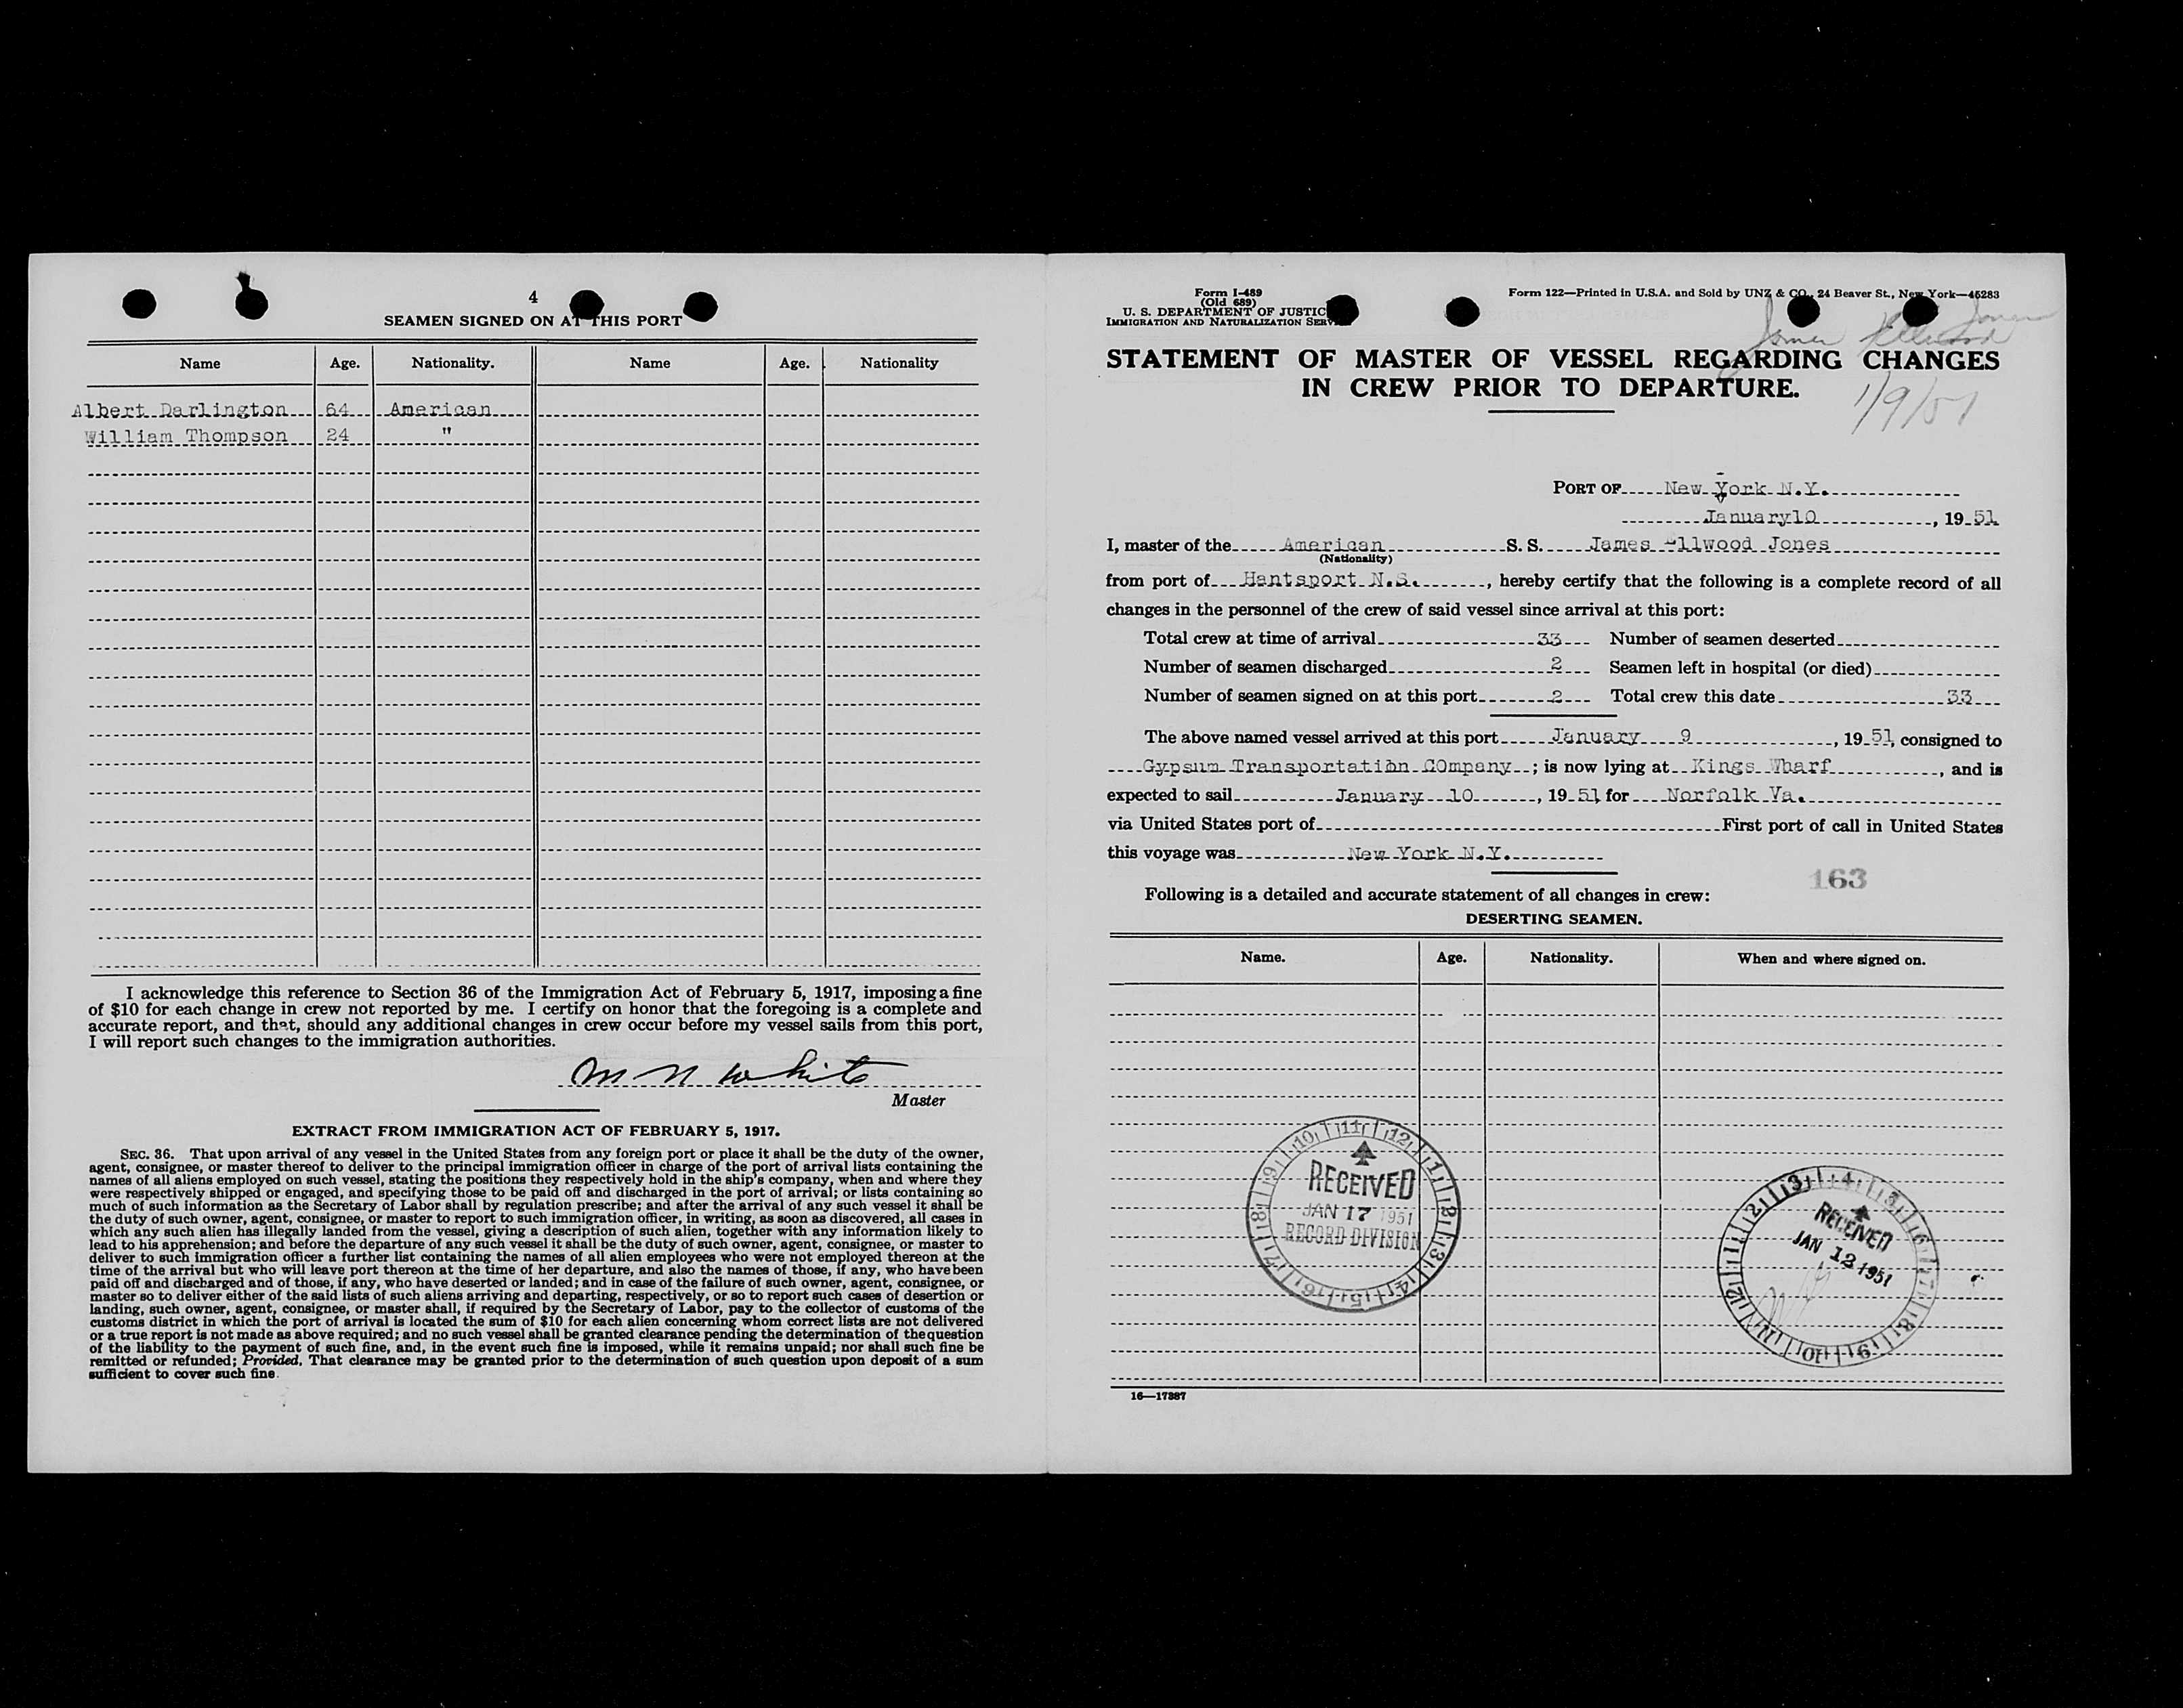 4
SEAMEN SIGNED ON AT THIS PORT
Name Age. Nationality. Name Age. Nationality
Albert Darlington 64 American
William Thompson 24 "
I acknowledge this reference to Section 36 of the Immigration Act of February 5, 1917, imposing a fine
of $10 for each change in crew not reported by me. I certify on honor that the foregoing is a complete and
accurate report, and that, should any additional changes in crew occur before my vessel sails from this port,
I will report such changes to the immigration authorities.
M N White
Master
EXTRACT FROM IMMIGRATION ACT OF FEBRUARY 5, 1917.
SEC. 36. That upon arrival of any vessel in the United States from any foreign port or place it shall be the duty of the owner,
agent, consignee, or master thereof to deliver to the principal immigration officer in charge of the port of arrival lists containing the
names of all aliens employed on such vessel, stating the positions they respectively hold in the ship's company, when and where they
were respectively shipped or engaged, and specifying those to be paid off and discharged in the port of arrival; or lists containing so
much of such information as the Secretary of Labor shall by regulation prescribe; and after the arrival of any such vessel it shall be
the duty of such owner, agent, consignee, or master to report to such immigration officer, in writing, as soon as discovered, all cases in
which any such alien has illegally landed from the vessel, giving a description of such alien, together with any information likely to
lead to his apprehension; and before the departure of any such vessel it shall be the duty of such owner, agent, consignee, or master to
deliver to such immigration officer a further list containing the names of all alien employees who were not employed thereon at the
time of the arrival but who will leave port thereon at the time of her departure, and also the names of those, if any, who have been
paid off and discharged and of those, if any, who have deserted or landed; and in case of the failure of such owner, agent, consignee, or
master so to deliver either of the said lists of such aliens arriving and departing, respectively, or so to report such cases of desertion or
landing, such owner, agent, consignee, or master shall, if required by the Secretary of Labor, pay to the collector of customs of the
customs district in which the port of arrival is located the sum of $10 for each alien concerning whom correct lists are not delivered
or a true report is not made as above required; and no such vessel shall be granted clearance pending the determination of the question
of the liability to the payment of such fine, and, in the event such fine is imposed, while it remains unpaid; nor shall such fine be
remitted or refunded; Provided, That clearance may be granted prior to the determination of such question upon deposit of a sum
sufficient to cover such fine.
Form I-489
(Old 689)
U. S. DEPARTMENT OF JUSTIC
IMMIGRATION AND NATURALIZATION SERV
Form 122—Printed in U.S.A. and Sold by UNZ & CO., 24 Beaver St., New York—45283
James Ellwood Jones
STATEMENT OF MASTER OF VESSEL REGARDING CHANGES
IN CREW PRIOR TO DEPARTURE.
1/9/51
PORT OF New York N.Y.
January10, 1951
I, master of the American S. S. James Ellwood Jones
(Nationality)
from port of Hantsport N.S., hereby certify that the following is a complete record of all
changes in the personnel of the crew of said vessel since arrival at this port:
Total crew at time of arrival 33 Number of seamen deserted
Number of seamen discharged 2 Seamen left in hospital (or died)
Number of seamen signed on at this port 2 Total crew this date 33
The above named vessel arrived at this port January 9, 1951, consigned to
Gypsum Transportatibn COmpany; is now lying at Kings Wharf, and is
expected to sail January 10, 1951 for Norfolk Va.
via United States port of First port of call in United States
this voyage was New York N.Y.
163
Following is a detailed and accurate statement of all changes in crew:
DESERTING SEAMEN.
Name. Age. Nationality. When and where signed on.
10 11 12 1 2 3 4 5 6 7 8 9
RECEIVED
JAN 17 1951
RECORD DIVISION
3 4 5 6 7 8 9 10 11 12 1 2
RECEIVED
JAN 12 1951
16—17887